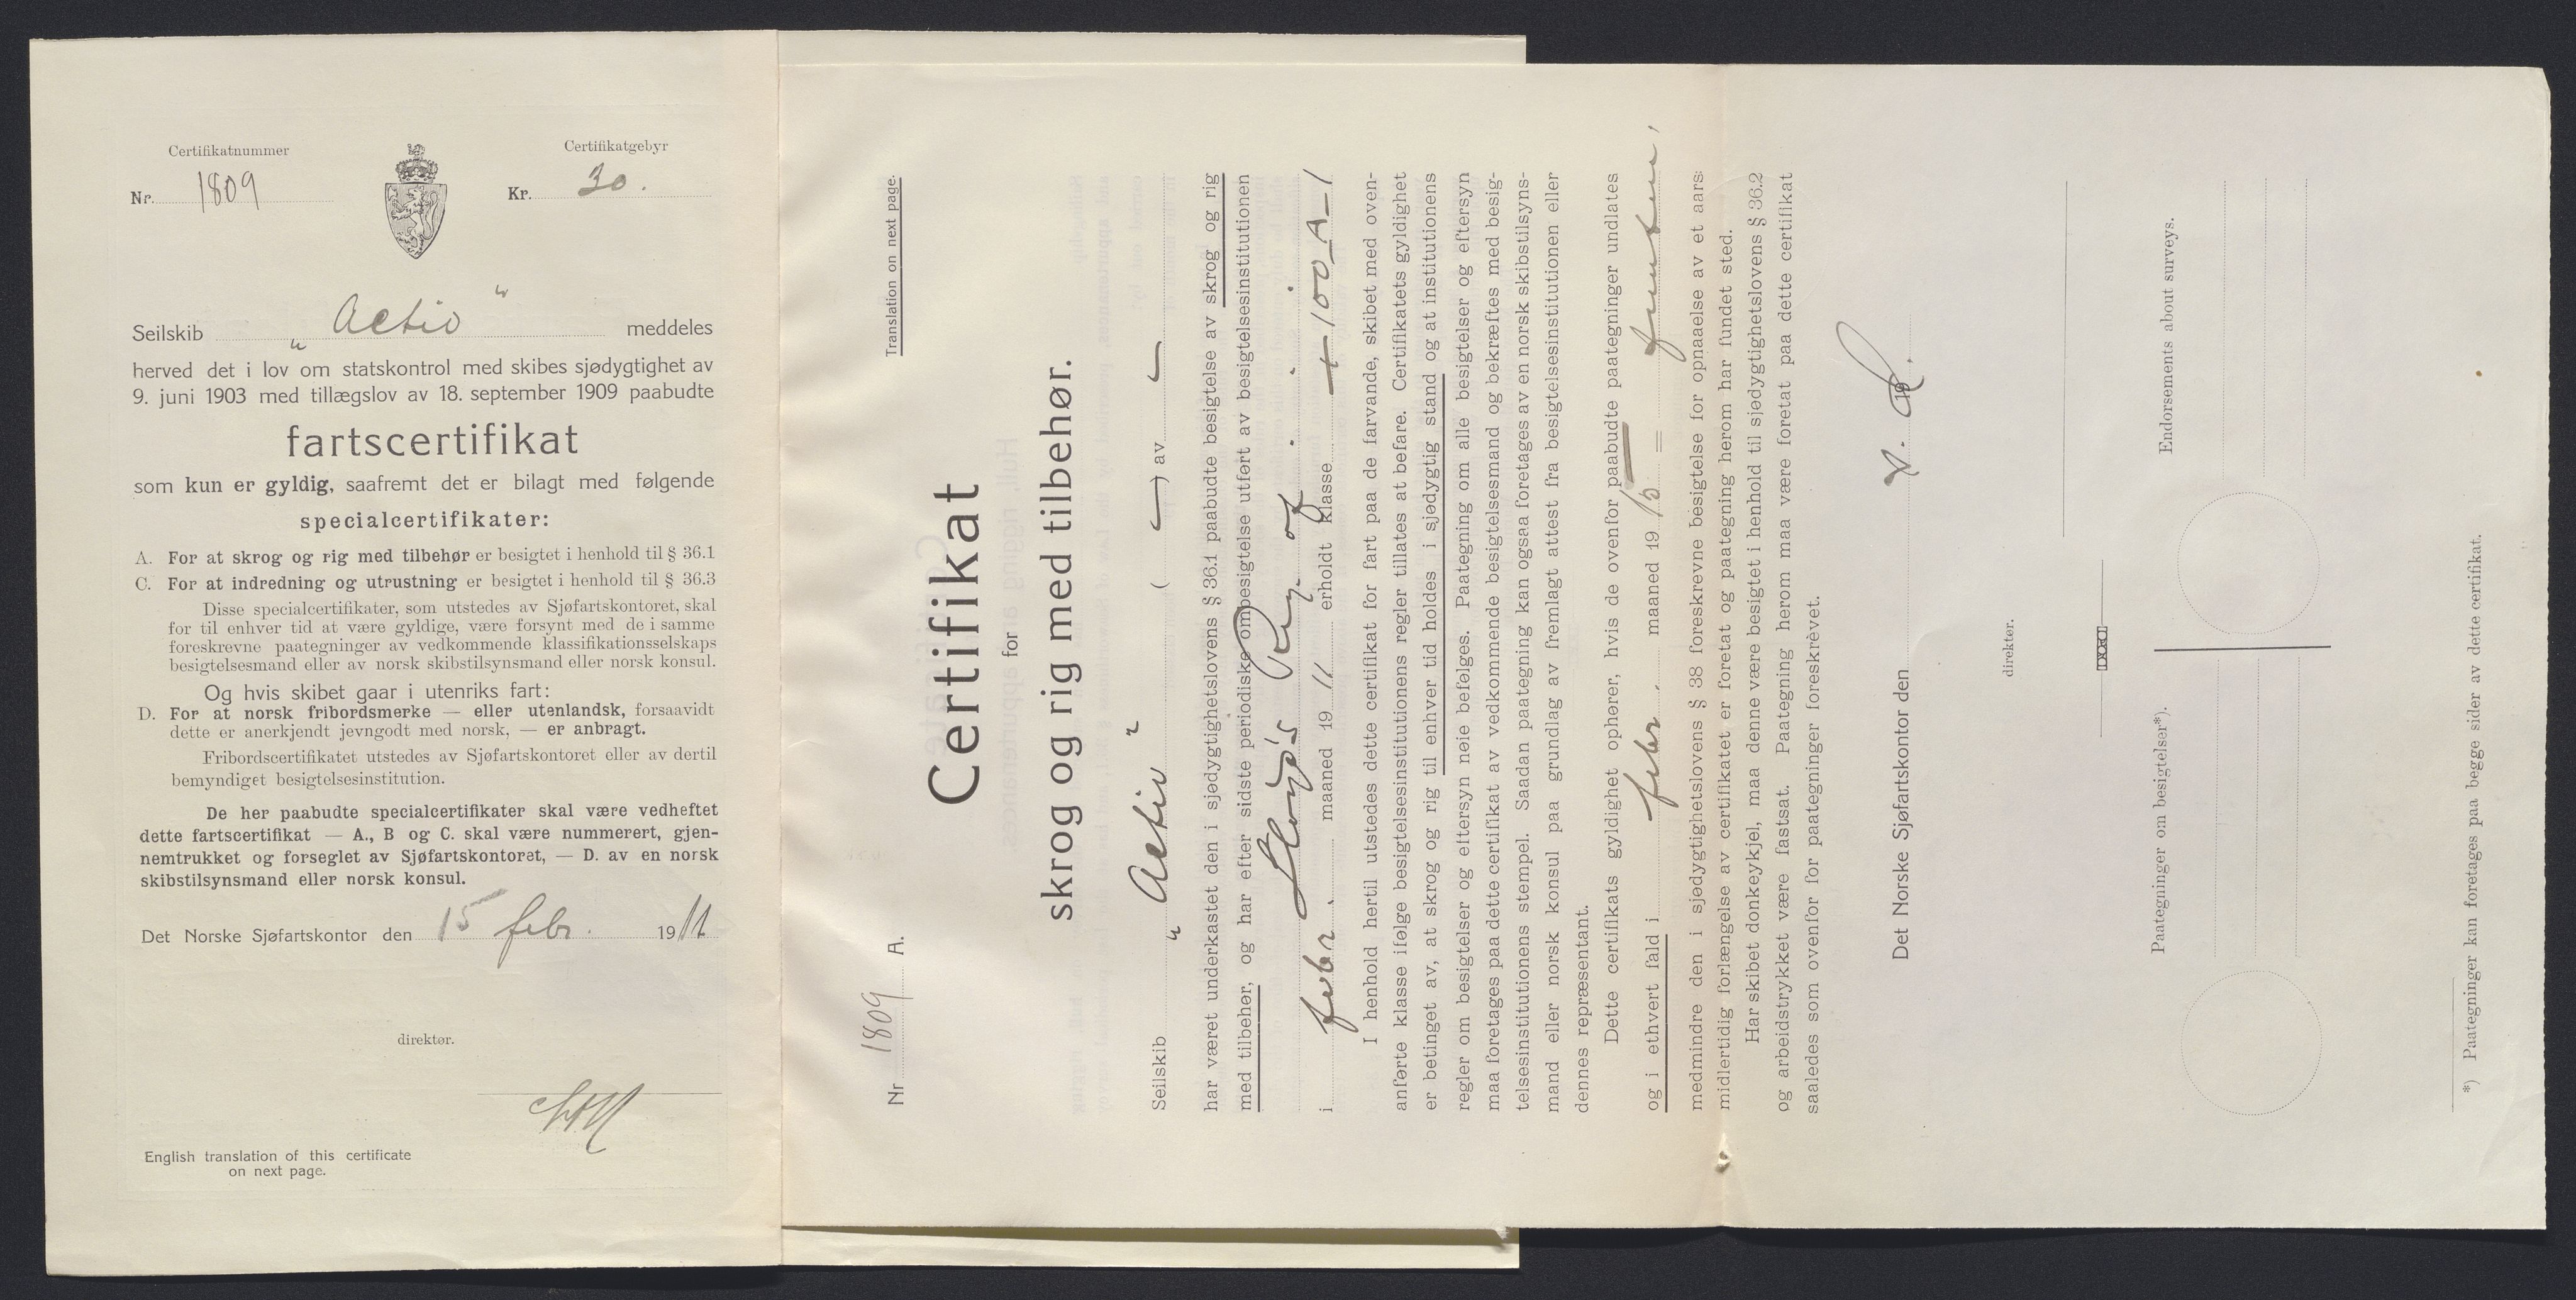 Certifikatnummer
Nr. 1809
Certifikatgebyr
Kr. 30.
Seilskib „Activ“ meddeles
herved det i lov om statskontrol med skibes sjødygtighet av
9. juni 1903 med tillægslov av 18. september 1909 paabudte
fartscertifikat
som kun er gyldig, saafremt det er bilagt med følgende
specialcertifikater:
A. For at skrog og rig med tilbehør er besigtet i henhold til § 36.1
C. For at indredning og utrustning er besigtet i henhold til § 36.3
Disse specialcertifikater, som utstedes av Sjøfartskontoret, skal
for til enhver tid at være gyldige, være forsynt med de i samme
foreskrevne paategninger av vedkommende klassifikationsselskaps
besigtelsesmand eller av norsk skibstilsynsmand eller norsk konsul.
Og hvis skibet gaar i utenriks fart:
D. For at norsk fribordsmerke — eller utenlandsk, forsaavidt
dette er anerkjendt jevngodt med norsk, — er anbragt.
Fribordscertifikatet utstedes av Sjøfartskontoret eller av dertil
bemyndiget besigtelsesinstitution.
De her paabudte specialcertifikater skal være vedheftet
dette fartscertifikat — A., B og C. skal være nummerert, gjen-
nemtrukket og forseglet av Sjøfartskontoret, — D. av en norsk
skibstilsynsmand eller norsk konsul.
Det Norske Sjøfartskontor den 15 febr. 1911
direktør.
English translation of this certificate
on next page.
Nr 1809 A.
Translation on next page.
Certifikat
for
skrog og rig med tilbehør.
Seilskib „Activ“ ( — ) av —
har været underkastet den i sjødygtighetslovens § 36.1 paabudte besigtelse av skrog og rig
med tilbehør, og har efter sidste periodiske ombesigtelse utført av besigtelsesinstitutionen
Lloyd's Reg. of . . .
i febr. maaned 1911 erholdt klasse + 100 A 1
I henhold hertil utstedes dette certifikat for fart paa de farvande, skibet med oven-
anførte klasse ifølge besigtelsesinstitutionens regler tillates at befare. Certifikatets gyldighet
er betinget av, at skrog og rig til enhver tid holdes i sjødygtig stand og at institutionens
regler om besigtelser og eftersyn nøie befølges. Paategning om alle besigtelser og eftersyn
maa foretages paa dette certifikat av vedkommende besigtelsesmand og bekræftes med besig-
telsesinstitutionens stempel. Saadan paategning kan ogsaa foretages av en norsk skibstilsyns-
mand eller norsk konsul paa grundlag av fremlagt attest fra besigtelsesinstitutionen eller
dennes repræsentant.
Dette certifikats gyldighet ophører, hvis de ovenfor paabudte paategninger undlates
og i ethvert fald i febr. maaned 1915 = femten,
medmindre den i sjødygtighetslovens § 38 foreskrevne besigtelse for opnaaelse av et aars
midlertidig forlængelse av certifikatet er foretat og paategning herom har fundet sted.
Har skibet donkeykjel, maa denne være besigtet i henhold til sjødygtighetslovens § 36.2
og arbeidstrykket være fastsat. Paategning herom maa være foretat paa dette certifikat
saaledes som ovenfor for paategninger foreskrèvet.
Det Norske Sjøfartskontor den 19
direktør.
Paategninger om besigtelser*).
Endorsements about surveys.
*) Paategninger kan foretages paa begge sider av dette certifikat.